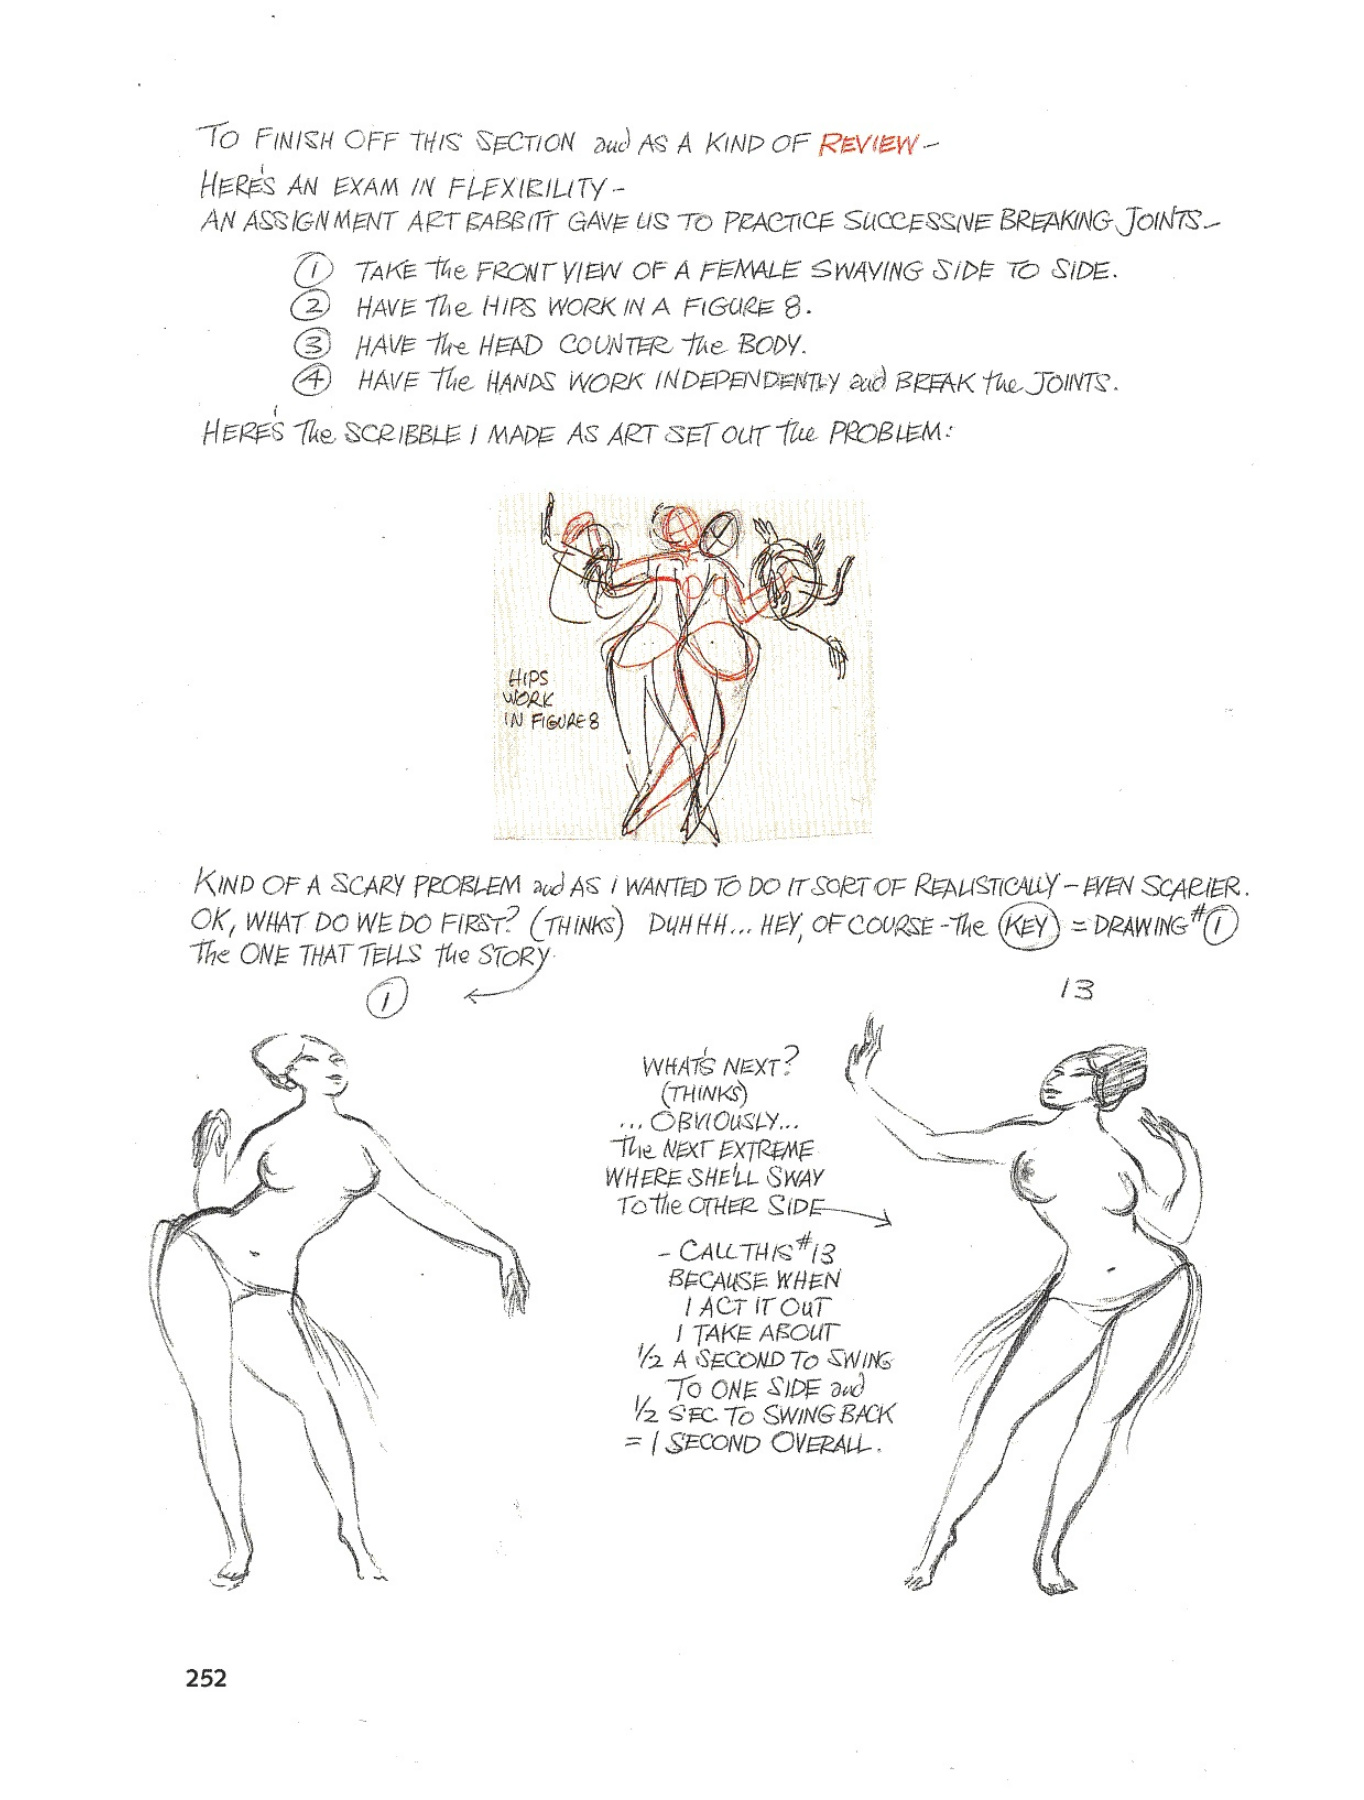 TO FINISH OFF THIS SECTION and AS A KIND OF REVIEW –
HERE'S AN EXAM IN FLEXIBILITY –
AN ASSIGNMENT ART BABBITT GAVE US TO PRACTICE SUCCESSIVE BREAKING JOINTS –
1 TAKE the FRONT VIEW OF A FEMALE SWAYING SIDE TO SIDE.
2 HAVE The HIPS WORK IN A FIGURE 8.
3 HAVE the HEAD COUNTER the BODY.
4 HAVE The HANDS WORK INDEPENDENTLY and BREAK the JOINTS.
HERE'S The SCRIBBLE I MADE AS ART SET OUT the PROBLEM:
HIPS
WORK
IN FIGURE 8
KIND OF A SCARY PROBLEM and AS I WANTED TO DO IT SORT OF REALISTICALLY – EVEN SCARIER.
OK, WHAT DO WE DO FIRST? (THINKS) DUHHH... HEY, OF COURSE – The KEY = DRAWING #1
The ONE THAT TELLS the STORY.
1
13
WHAT'S NEXT?
(THINKS)
... OBVIOUSLY...
The NEXT EXTREME
WHERE SHE'LL SWAY
TO the OTHER SIDE
– CALL THIS #13
BECAUSE WHEN
I ACT IT OUT
I TAKE ABOUT
1/2 A SECOND TO SWING
TO ONE SIDE and
1/2 SEC. TO SWING BACK
= 1 SECOND OVERALL.
252